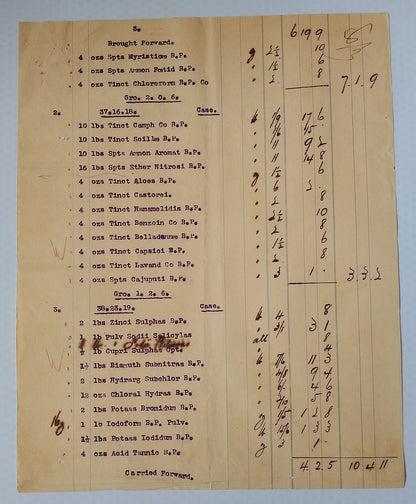 3.
6 19 9
Brought Forward.
4 ozs Spts Myristicae B.P. 2½ 10
4 ozs Spts Ammon Fœtid B.P. 1½ 6
4 ozs Tinct Chloroform B.P. Co 2 8
7. 1. 9
Gro. 2. 0. 6.
2. 37.16.18. Case.
10 lbs Tinct Camph Co B.P. 1/9 17 6
10 lbs Tinct Scillae B.P. 1/6 15 .
10 lbs Spts Ammon Aromat B.P. 11 9 2
16 lbs Spts Ether Nitrosi B.P. 11 14 8
4 ozs Tinct Aloes B.P. 1½ 6
4 ozs Tinct Castorei. 6 2 .
4 ozs Tinct Hamamelidis B.P. 2 8
4 ozs Tinct Benzoin Co B.P. 2½ 10
4 ozs Tinct Belladonnae B.P. 2 8
4 ozs Tinct Capsici B.P. 1½ 6
4 ozs Tinct Lavand Co B.P. 2 8
4 ozs Spts Cajuputi B.P. 3 1 .
3. 3. 2
Gro. 1. 2. 6.
3. 38.23.19. Case.
2 lbs Zinci Sulphas B.P. 4 8
1 lb Pulv Sodii Salicylas 3/1 3 1
8
½ lb Cupri Sulphas Opt. 4
1½ lbs Bismuth Subnitras B.P. 7/6 11 3
2 lbs Hydrarg Subchlor B.P. 4/8 9 4
12 ozs Chloral Hydras B.P. 4 6
2 lbs Potass Bromidum B.P. 2/10 5 8
1 lb Iodoform B.P. Pulv. 12 8
1½ lbs Potass Iodidum B.P. 13 3
4 ozs Acid Tannic B.P. 3 1 .
Carried Forward.
4. 2. 5 10 4 11